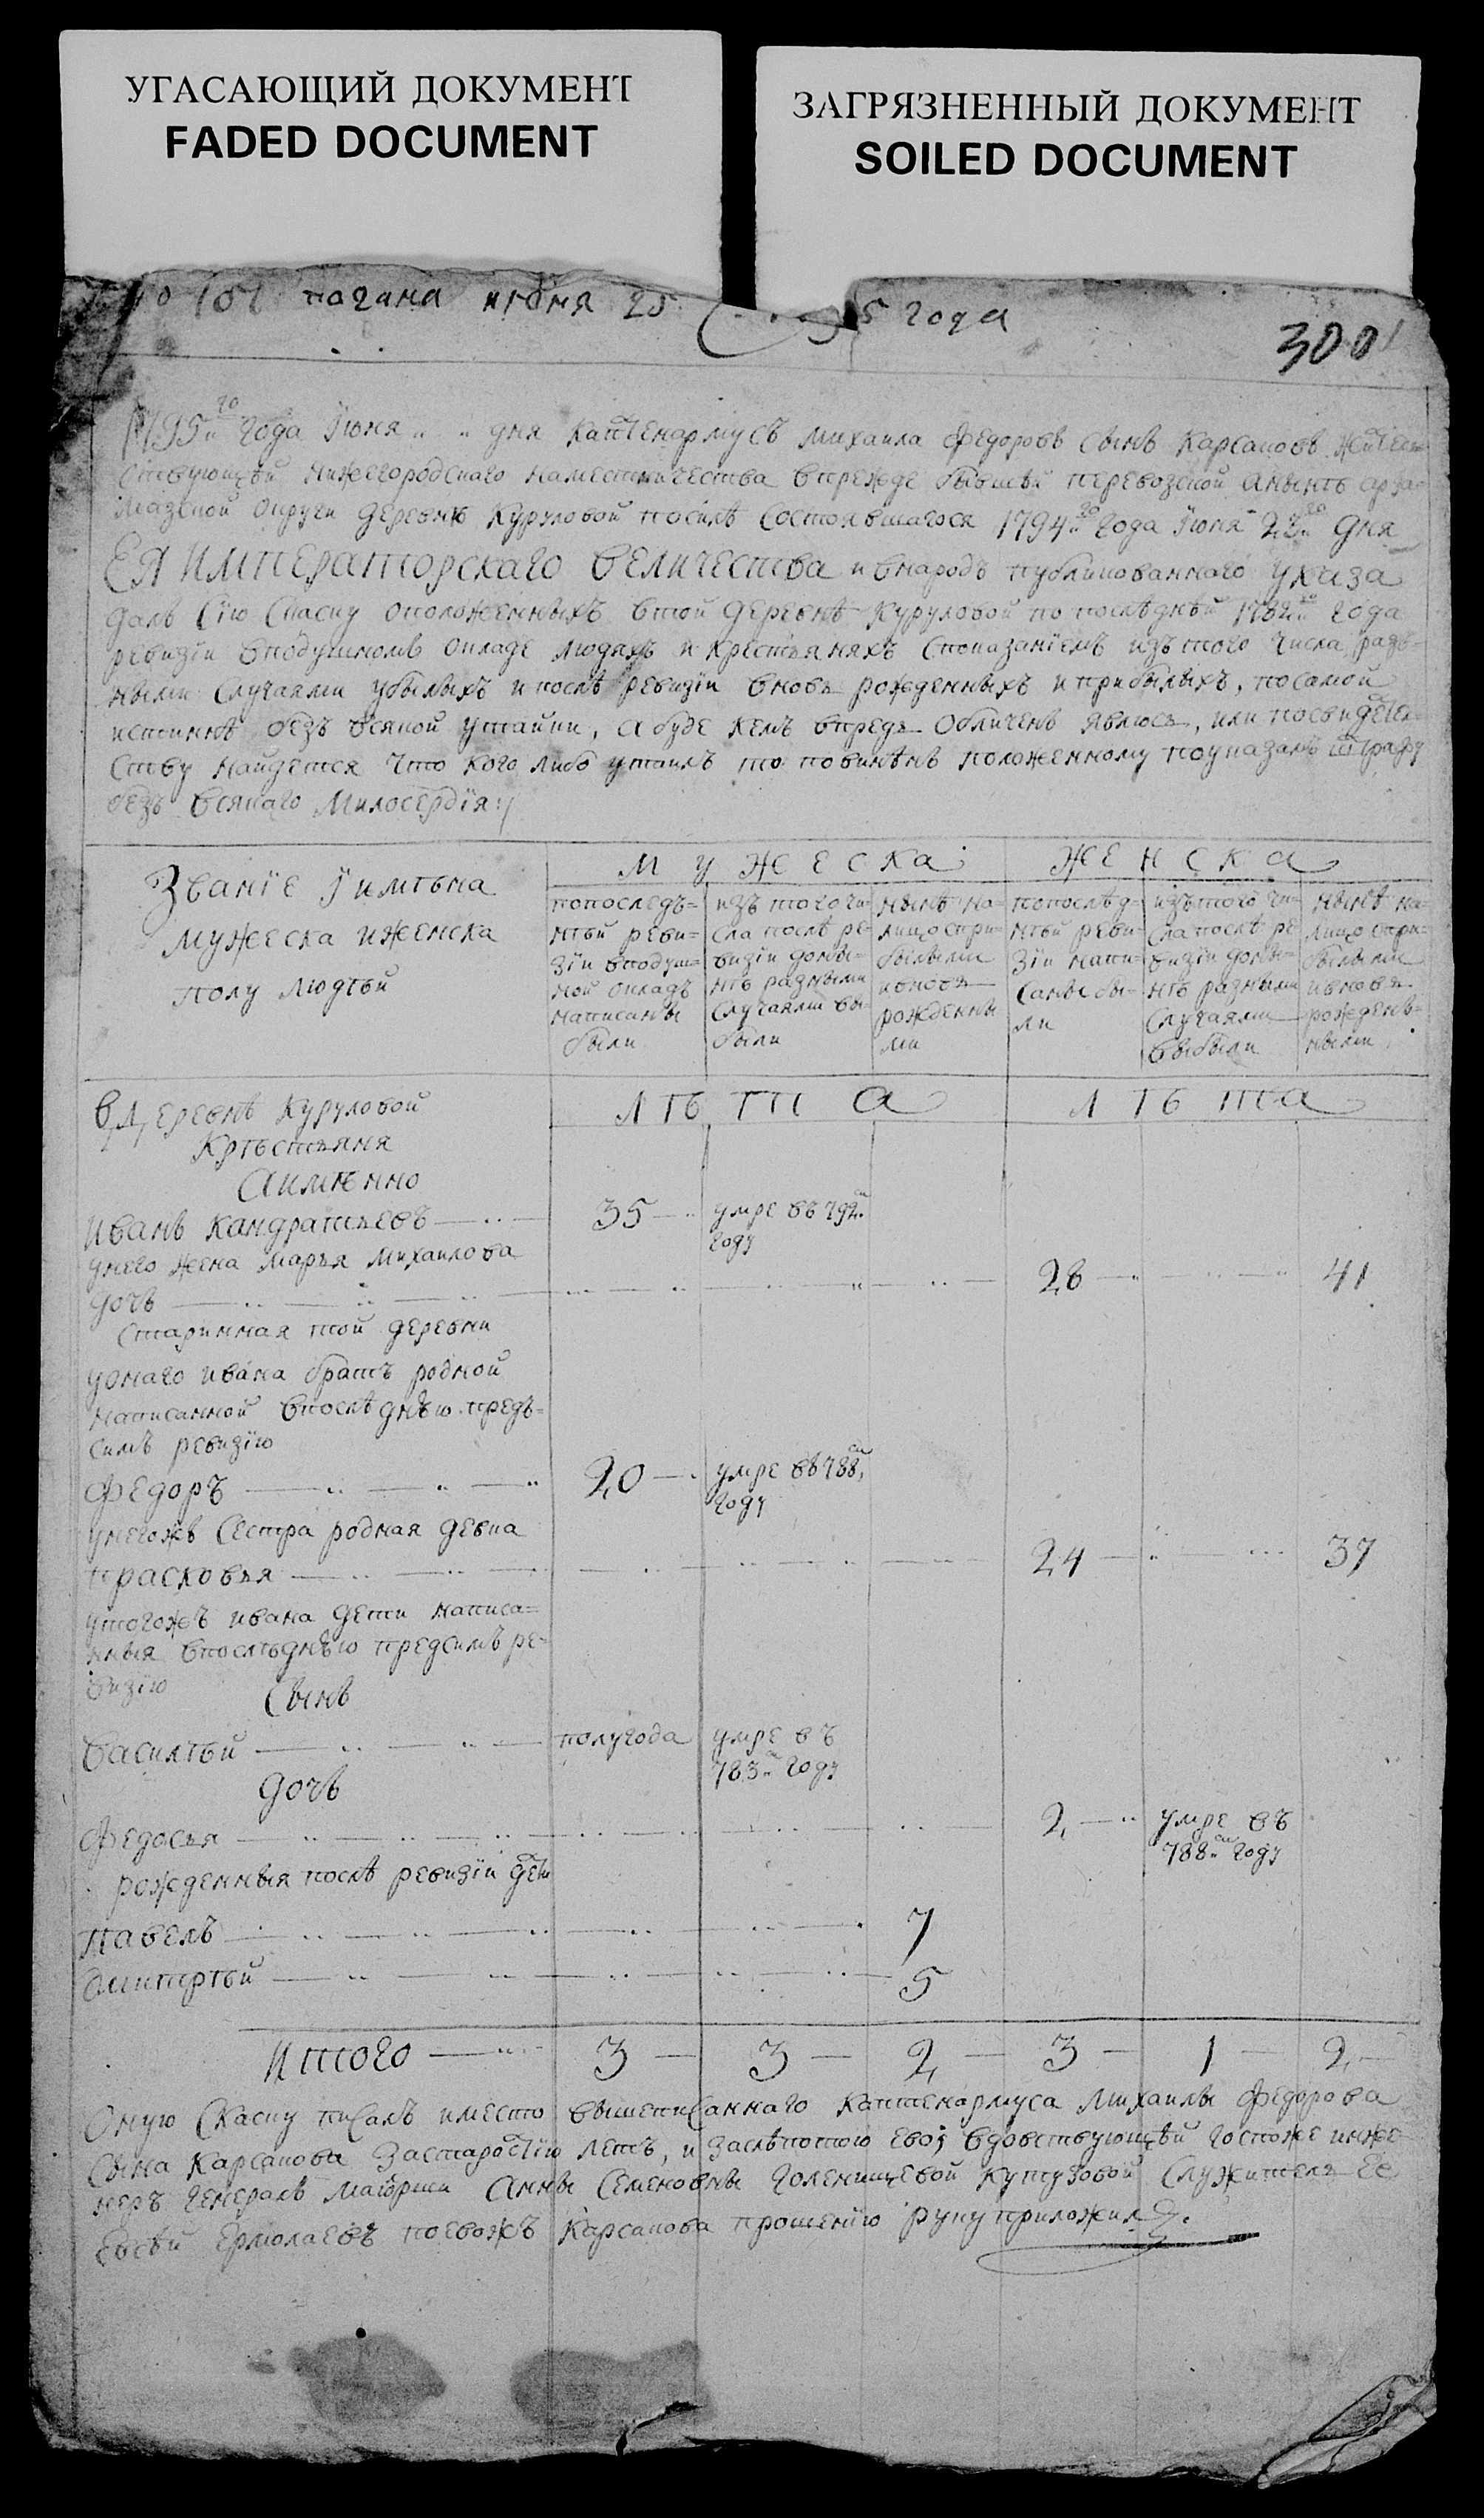 УГАСАЮЩИЙ ДОКУМЕНТ
FADED DOCUMENT
ЗАГРЯЗНЕННЫЙ ДОКУМЕНТ
SOILED DOCUMENT
подана июня 25 5 года
300
1795го года Июня „ „ дня каптенармусъ михаила федоровъ сынъ Карсаковъ жител
ствующей нижегородскаго наместничества впрежде бывшей перевозской анынѣ арза=
маской округи деревни Куруловой посилѣ состоявшагося 1794го года Июня 23го дня
ЕЯ ИМПЕРАТОРСКАГО ВЕЛИЧЕСТВА и внародъ публикованнаго указа
далъ сію скаску оположенныхъ втой деревнѣ Куруловой по послѣднѣй 1782го года
ревизіи вподушномъ окладе людяхъ и крестьяняхъ споказаніемъ изъ того числа разъ=
ными случаями убылыхъ и послѣ ревизіи вновь рожденныхъ и прибылыхъ, посамой
истиннѣ безъ всякой утайки, а буде кемъ впредь обличенъ явлюсь, или посвидетел=
ству найдется что кого либо утаилъ то повинѣнъ положенному поуказамъ штрафу
безъ всякаго Милосердія
Званіе Иимѣна
мужеска иженска
полу людѣй
мужеска
женска
попоследъ=
нѣй реви=
зіи вподуш=
ной окладъ
написаны
были
изъ того чи=
сла послѣ ре=
визіи доны=
нѣ разными
случаями вы=
были
нынѣ на=
лицо спри=
былыми
ивновь
рожденны
ми
попослѣд=
нѣй реви=
зіи напи=
саны бы=
ли
изътого чи=
сла послѣ ре
визіи доны=
нѣ разными
случаями
выбыли
нынѣ на=
лицо спри=
былыми
ивновь
рожденъ=
ными
вДеревнѣ Куруловой
Крѣстьяня
Аимѣнно
лѣта
лѣта
иванъ кандратьевъ 35 умре въ 792м
году
унего жена марья михаилова
дочь 28 41
старинная той деревни
уонаго ивана братъ родной
написанной впослѣднѣю предъ=
симъ ревизію
федоръ 20 умре въ 788м
году
унегожъ сестра родная девка
прасковья 24 37
утогожъ ивана дети написа=
нныя впослѣднѣю предсимъ ре=
визію
сынъ
василѣй полугода умре въ
783м году
дочь
федосья 2 умре въ
788м году
рожденныя послѣ ревизіи дети
павелъ 7
дмитрѣй 5
итого 3 3 2 3 1 2
Оную скаску писалъ иместо вышеписаннаго каптенармуса михаилы федорова
сына Карсакова застаростію летъ, и заслѣпотою ево, вдовствующѣй госпоже инже=
неръ генералъ маіорши Анны Семеновны Голенищевой Кутузовой служитель Ее
Евсѣй Ермолаевъ поевожъ Карсакова прошенію руку приложилъ.